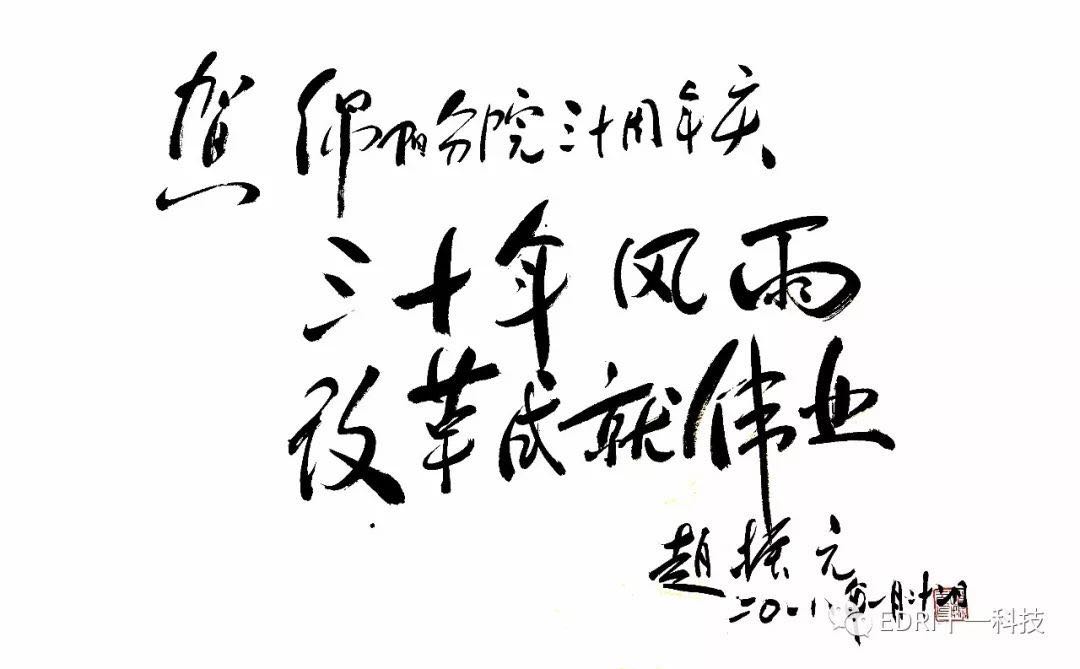 贺 绵阳分院三十周年庆
三十年风雨
改革成就伟业
赵振元
二〇一八年一月
EDRI十一科技